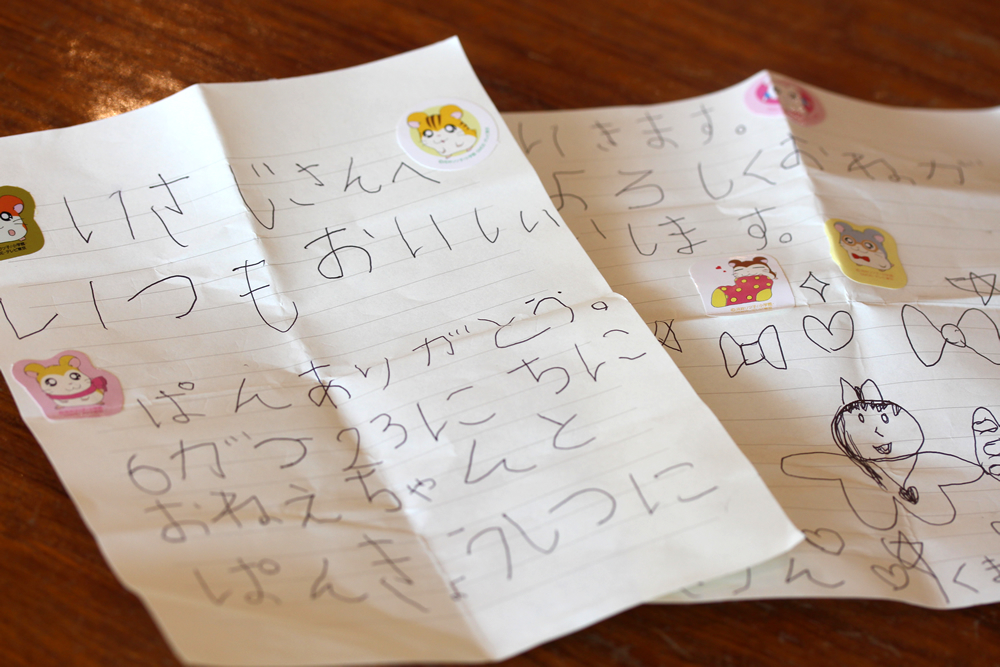 いさじさんへ
いつもおいしい
ぱんありがとう。
6がつ23にちに
おねえちゃんと
ぱんきょうしつに
いきます。
よろしくおねが
いします。